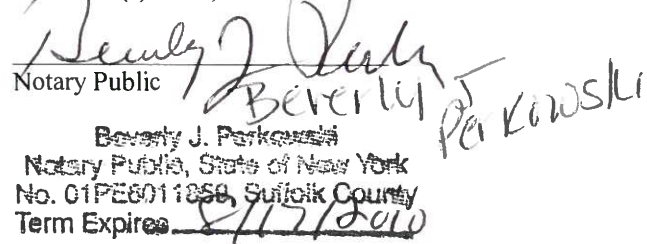 Beverly J Perkowski
Notary Public
Beverly J
Perkowski
Beverly J. Perkowski
Notary Public, State of New York
No. 01PE6011859, Suffolk County
Term Expires 8/17/2010